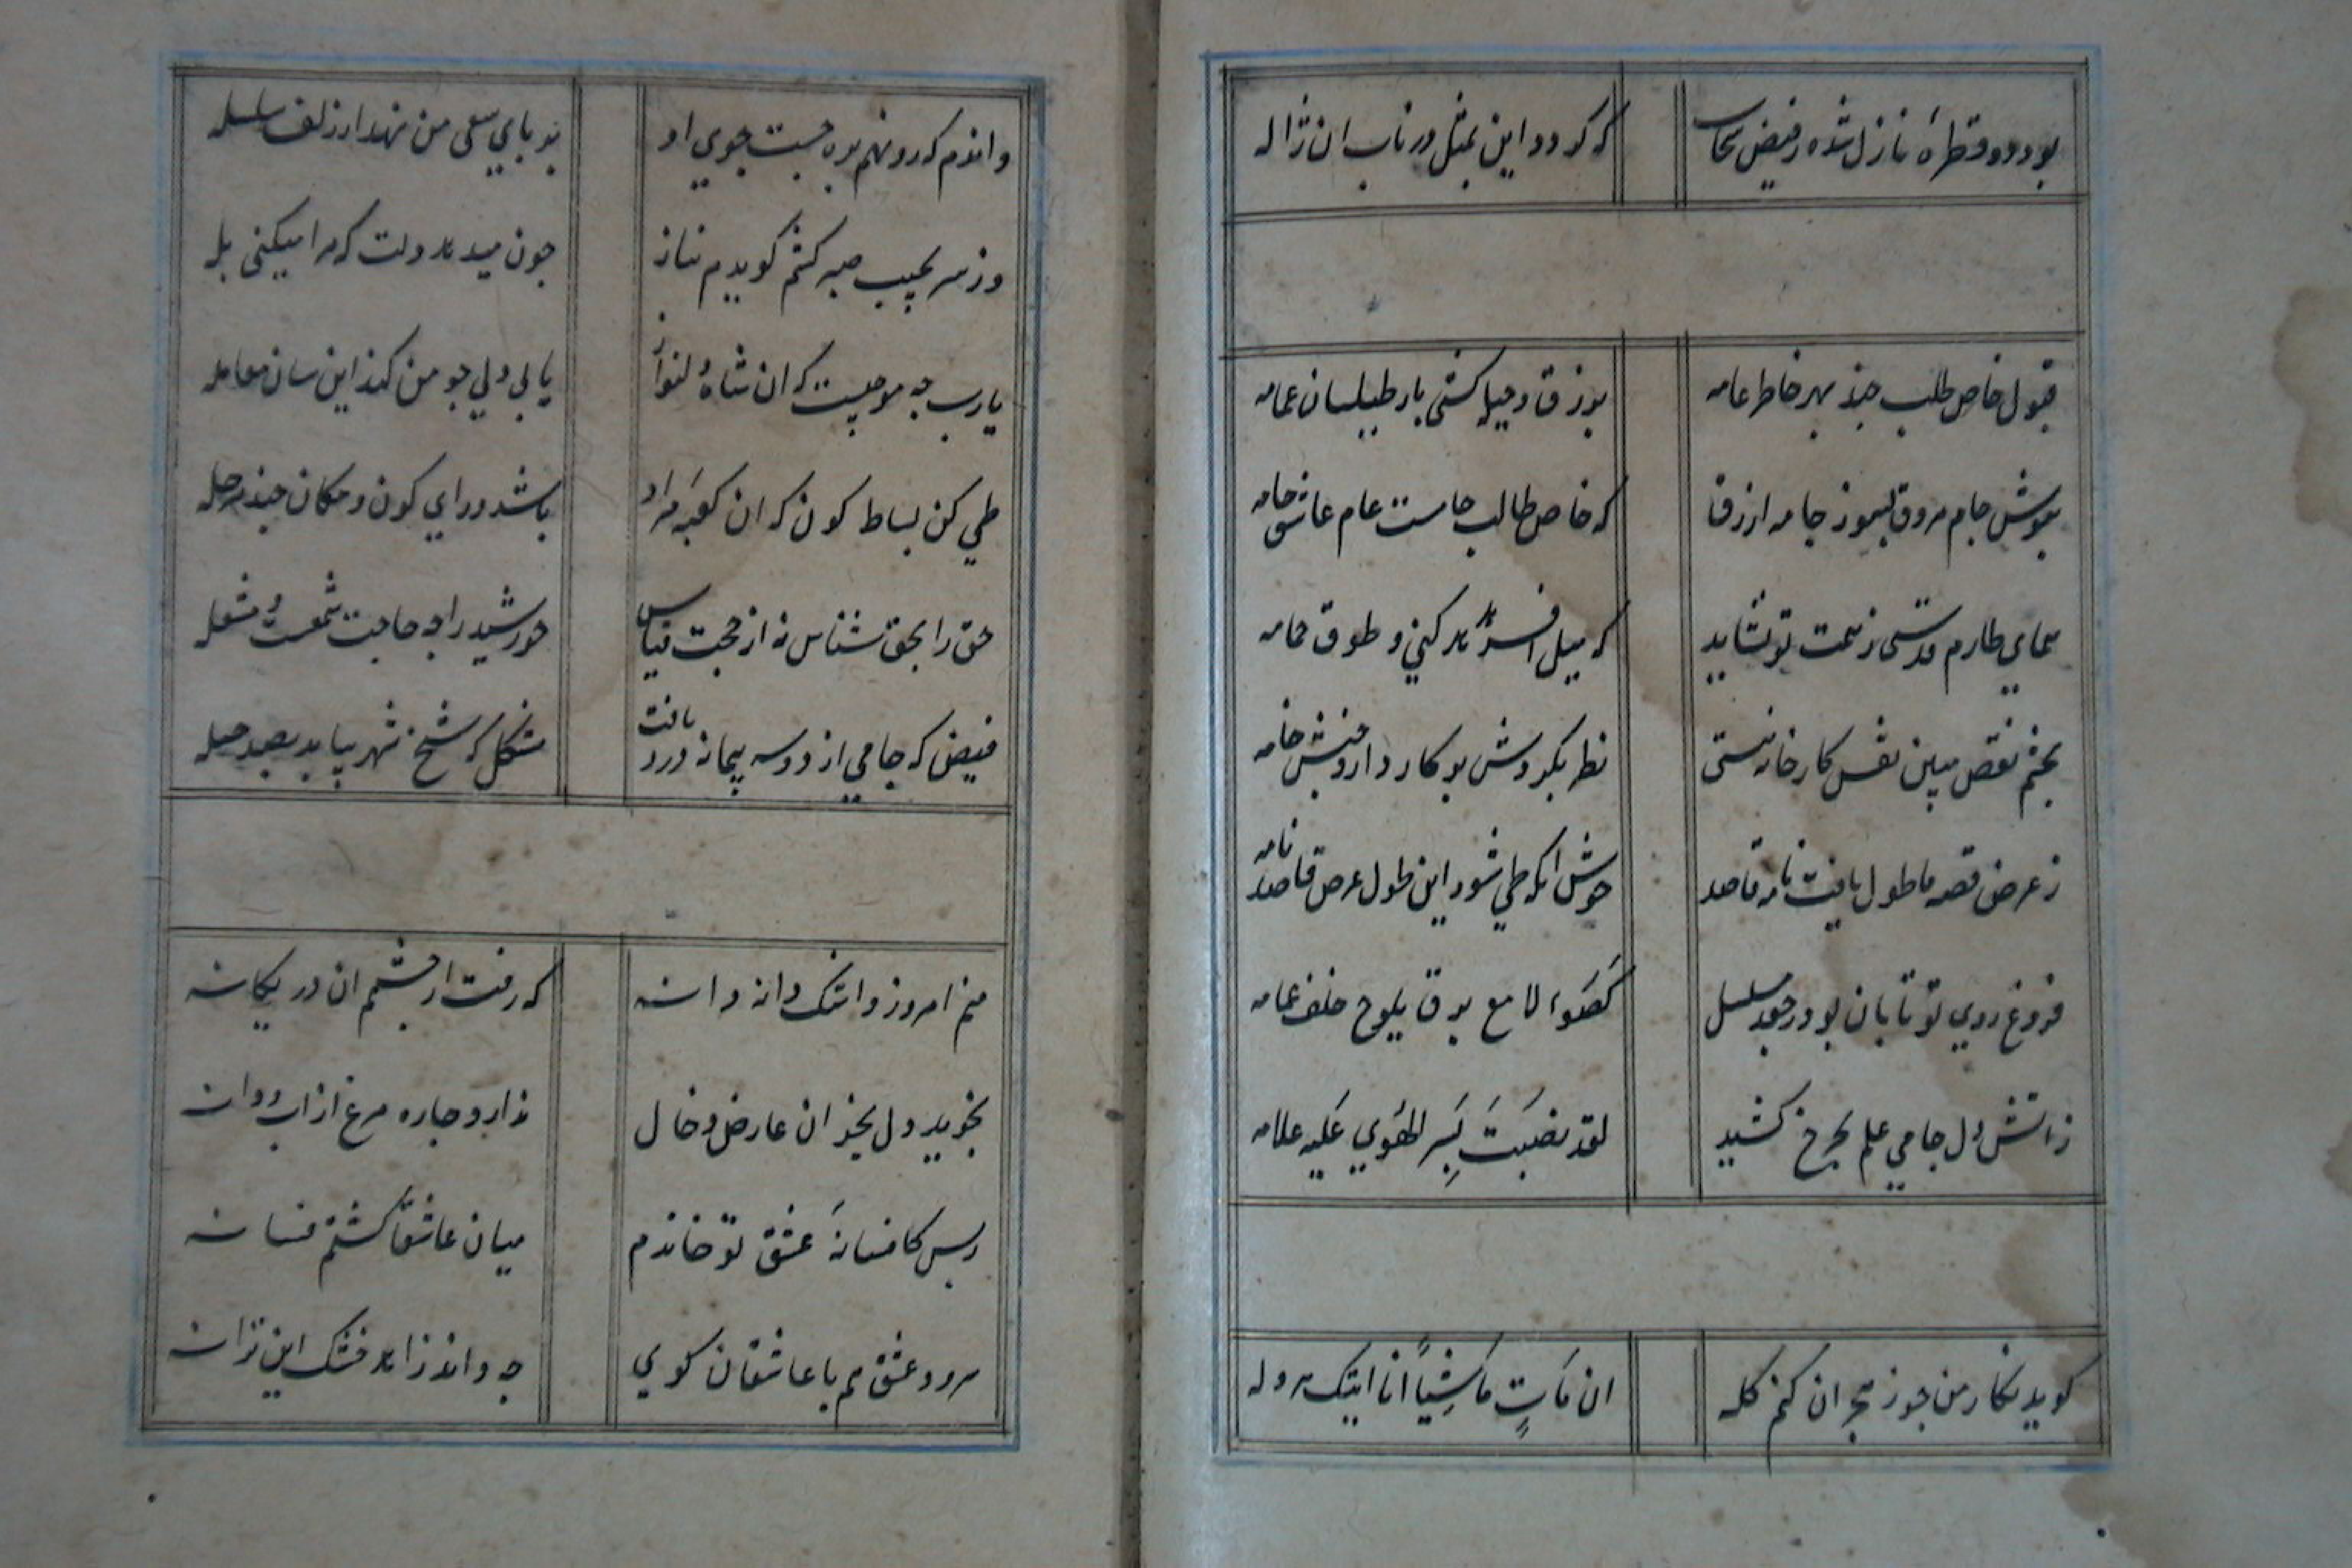 بود دو قطرهٔ نازل شده ز فیض سحاب که کردد این بمثل در ناب ان ژاله
قبول خاص طلب چند بهر خاطر عامه بزرق و حیله کشی بار طیلسان عمامه
بنوش جام مروق بسوز جامه ازرق که خاص طالب جامست عام عاشق جامه
همای طارم قدسی ز همت تو نشاید که میل افسر هدهد کنی و طوق حمامه
بچشم نقص مبین نقش کارخانه هستی نظر بکردش پرکار دار و جنبش خامه
ز عرض قصه ما طول یافت نامه قاصد خوش انکه طی شود این طول عرض قاصد نامه
فروغ روی تو تابان بود ز جعد مسلسل کَضَوء لامع برق یلوح خلف غمامه
ز اتش دل جامی علم بچرخ کشید لقد نصبت بسر الهوی علیه علامه
کوید نکار من چو ز هجران کنم کله ان مات ماشیاً انا اتیک هروله
دانم که رو نهم بره جست جوی او بر پای سعی من نهد از زلف سلسله
وز سر بجیب صبر کشم کویدم بناز چون میدهد دلت که مرا میکنی یله
یارب چه موجبست که ان شاه دلنواز با بی دلی چو من کند این سان معامله
طی کن بساط کون که ان کعبهٔ مراد باشد ورای کون و مکان چند مرحله
حق را بحق شناس نه از حجت قیاس خورشید را چه حاجت شمعست و مشعله
فیض که جامی از دو سه پیمانه درد یافت مشکل که شیخ شهر بیابد بصد چله
منم امروز و اشک دانه دانه که رفت از چشم ان در یکانه
نجوید دل بجز ان عارض و خال ندارد چاره مرغ از اب و دانه
ز بس کافسانهٔ عشق تو خاندم میان عاشقان کشتم فسانه
سرود عشق هم با عاشقان کوی چه داند زاهد خشک این ترانه